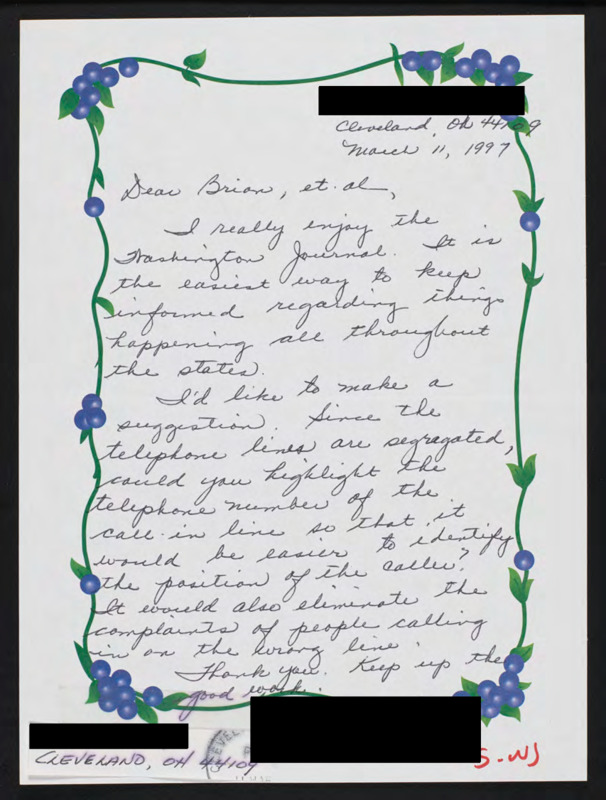 Cleveland, OH 44109
March 11, 1997
Dear Brian, et. al.,
I really enjoy the
Washington Journal. It is
the easiest way to keep
informed regarding things
happening all throughout
the states.
I'd like to make a
suggestion. Since the
telephone lines are segregated,
could you highlight the
telephone number of the
call-in line so that it
would be easier to identify
the position of the caller?
It would also eliminate the
complaints of people calling
in on the wrong line.
Thank you. Keep up the
good work.
CLEVELAND, OH 44109
S-WJ